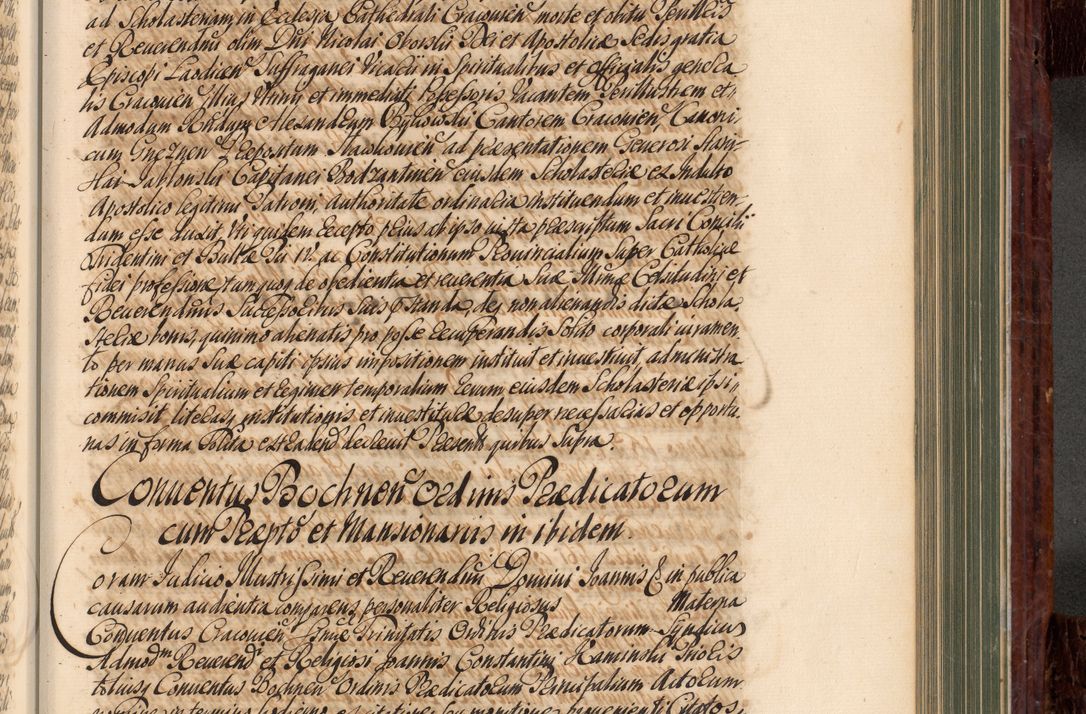 ad Scholasteriam, in Ecclesia Cathedrali Cracovien morte et obitu
et Reverendmi olim Dni Nicolai Oborski Dei et Apostolicæ Sedis gratia
Episcopi Laodicen Suffraganei Vicarii in Spiritualibus et Officialis genera
lis Cracovien illius Ultimi et immediati Possessoris Vacantem et
Admodum Rndum Alexandrum Cantorem Cracovien, Canoni
cum Gneznen Præpositum ad præsentationem Generosi
Jablonski Capitanei eiusdem Scholasteriæ ex Indulto
Apostolico legitimi Patroni, authoritate ordinaria instituendum et investien
dum esse duxit, Uti quidem recepto prius ab ipso iuxta præscriptum Sacri Concilii
Tridentini et Bullæ Pii IV. ac Constitutionum Provincialium super Catholicæ
fidei professione, tum quoq de obedientia et reverentia Suæ Celsitudini et
Reverendmis Successoribus Suis præstanda, deq non alienandis dictæ Schola
steriæ bonis, quinimo alienatis pro posse recuperandis Solito corporali iuramen
to per manus Suæ capiti ipsius impositionem instituit et investivit, administra
tionem Spiritualium et regimen temporalium eiusdem Scholasteriæ ipsi
commisit, literasq institutionis et investituræ desuper necessarias et opportu
nas in forma Solita extraden decrevit Præsentib quibus Supra.
Conventus Bochnen Ordinis Prædicatorum
cum Præpto et Mansionariis in ibidem.
Coram Iudicio Illustrissimi et Reverendmi Domini Ioannis & in publica
causarum audientia comparens personaliter Religiosus Materna
Conventus Cracovien Trinitatis Ordinis Prædicatorum Syndicus
Admodm Reverendi et Religiosi Ioannis Constantini Kaminski Prioris
totiusq Conventus Bochnen Ordinis Prædicatorum Principalium Actorum